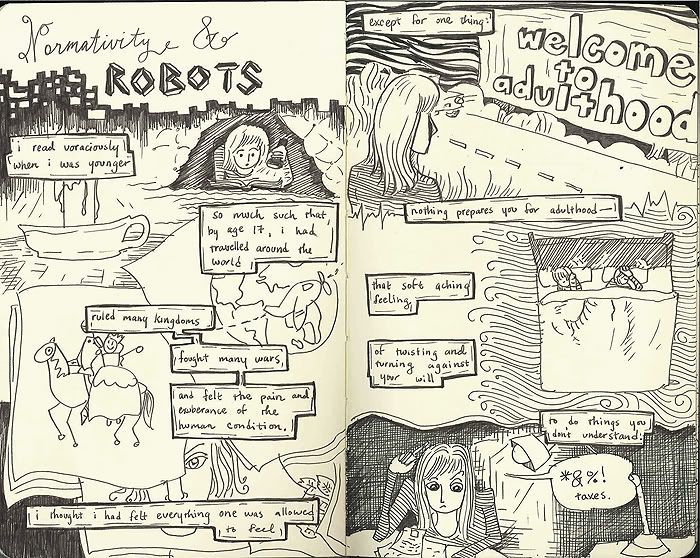 Normativity &
ROBOTS
i read voraciously
when i was younger
so much such that,
by age 17, i had
travelled around the
world
ruled many kingdoms
fought many wars,
and felt the pain and
exuberance of the
human condition.
i thought i had felt everything one was allowed
to feel,
except for one thing:
welcome
to
adulthood
nothing prepares you for adulthood—
that soft aching
feeling,
of twisting and
turning against
your will
to do things you
don't understand:
*&%!
taxes.